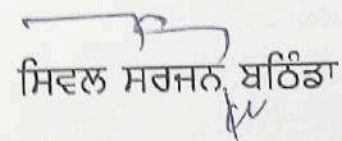 ਸਿਵਲ ਸਰਜਨ, ਬਠਿੰਡਾ